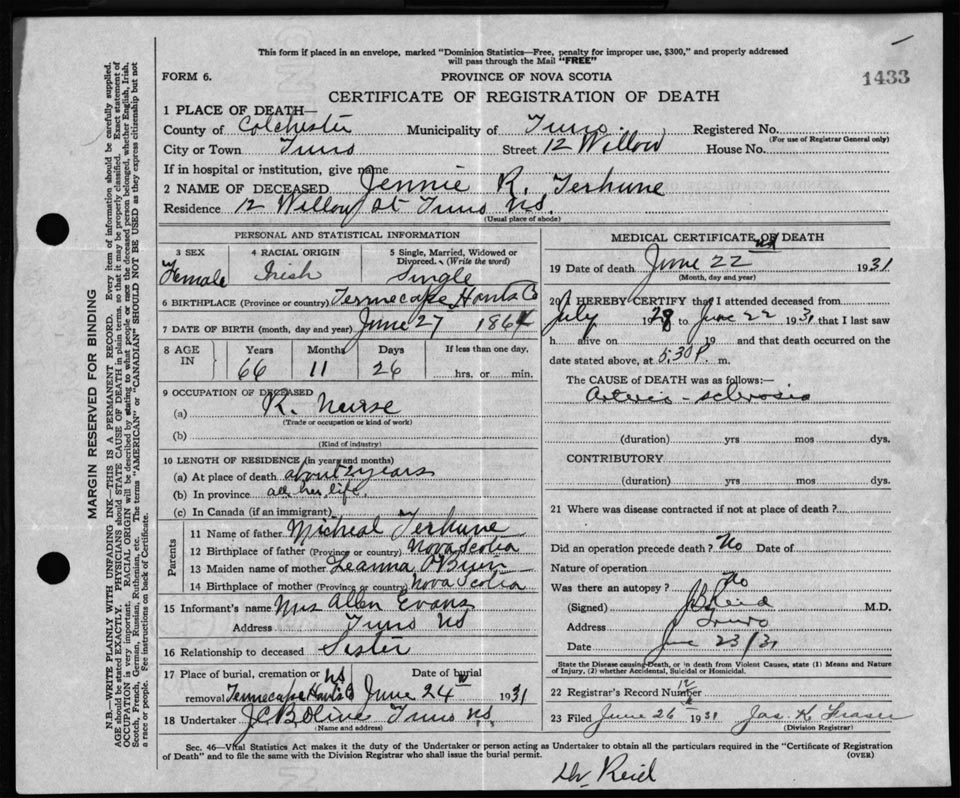 This form if placed in an envelope, marked "Dominion Statistics—Free, penalty for improper use, $300," and properly addressed
will pass through the Mail "FREE"
FORM 6.
PROVINCE OF NOVA SCOTIA
1433
CERTIFICATE OF REGISTRATION OF DEATH
1 PLACE OF DEATH—
County of Colchester Municipality of Truro Registered No.
(For use of Registrar General only)
City or Town Truro Street 12 Willow House No.
If in hospital or institution, give name
2 NAME OF DECEASED Jennie R. Terhune
Residence 12 Willow St Truro N.S.
(Usual place of abode)
PERSONAL AND STATISTICAL INFORMATION
3 SEX
Female
4 RACIAL ORIGIN
Irish
5 Single, Married, Widowed or
Divorced. (Write the word)
Single
6 BIRTHPLACE (Province or country) Tennecape Hants Co
7 DATE OF BIRTH (month, day and year) June 27 1864
8 AGE IN
Years Months Days If less than one day,
66 11 26 hrs. or min.
9 OCCUPATION OF DECEASED
(a) R. Nurse
(Trade or occupation or kind of work)
(b)
(Kind of industry)
10 LENGTH OF RESIDENCE (in years and months)
(a) At place of death about 2 years
(b) In province all her life.
(c) In Canada (if an immigrant)
Parents
11 Name of father Micheal Terhune
12 Birthplace of father (Province or country) Nova Scotia
13 Maiden name of mother Leanna OBrien
14 Birthplace of mother (Province or country) Nova Scotia
15 Informant's name Mrs Allen Evans
Address Truro NS
16 Relationship to deceased Sister
17 Place of burial, cremation or NS Date of burial
removal Tennecape Hants Co June 24 1931
18 Undertaker J.C.B. Olive Truro N.S.
(Name and address)
MEDICAL CERTIFICATE OF DEATH
19 Date of death June 22 1931
(Month, day and year)
20 I HEREBY CERTIFY that I attended deceased from
July 1928 to June 22 1931 that I last saw
h alive on 19 and that death occurred on the
date stated above, at 5.30 P. m.
The CAUSE OF DEATH was as follows:—
Arterio-sclerosis
(duration) yrs mos dys.
CONTRIBUTORY
(duration) yrs mos dys.
21 Where was disease contracted if not at place of death?
Did an operation precede death? No Date of
Nature of operation
Was there an autopsy? No
(Signed) Reid M.D.
Address Truro
Date June 23/31
State the Disease causing Death, or in death from Violent Causes, state (1) Means and Nature
of Injury, (2) whether Accidental, Suicidal or Homicidal.
22 Registrar's Record Number
23 Filed June 26 1931 Jas. K. Fraser
(Division Registrar)
Sec. 46—Vital Statistics Act makes it the duty of the Undertaker or person acting as Undertaker to obtain all the particulars required in the "Certificate of Registration
of Death" and to file the same with the Division Registrar who shall issue the burial permit.
(OVER)
Dr Reid
MARGIN RESERVED FOR BINDING
N.B.—WRITE PLAINLY WITH UNFADING INK—THIS IS A PERMANENT RECORD. Every item of information should be carefully supplied.
AGE should be stated EXACTLY. PHYSICIANS should STATE CAUSE OF DEATH in plain terms, so that it may be properly classified. Exact statement of
OCCUPATION is very important. RACIAL ORIGIN will be described by stating to what people or race the deceased person belonged, whether English, Irish,
Scotch, French, German, Russian, Ruthenian, etc. The terms "AMERICAN" or "CANADIAN" SHOULD NOT BE USED as they express citizenship but not
a race or people. See instructions on back of Certificate.